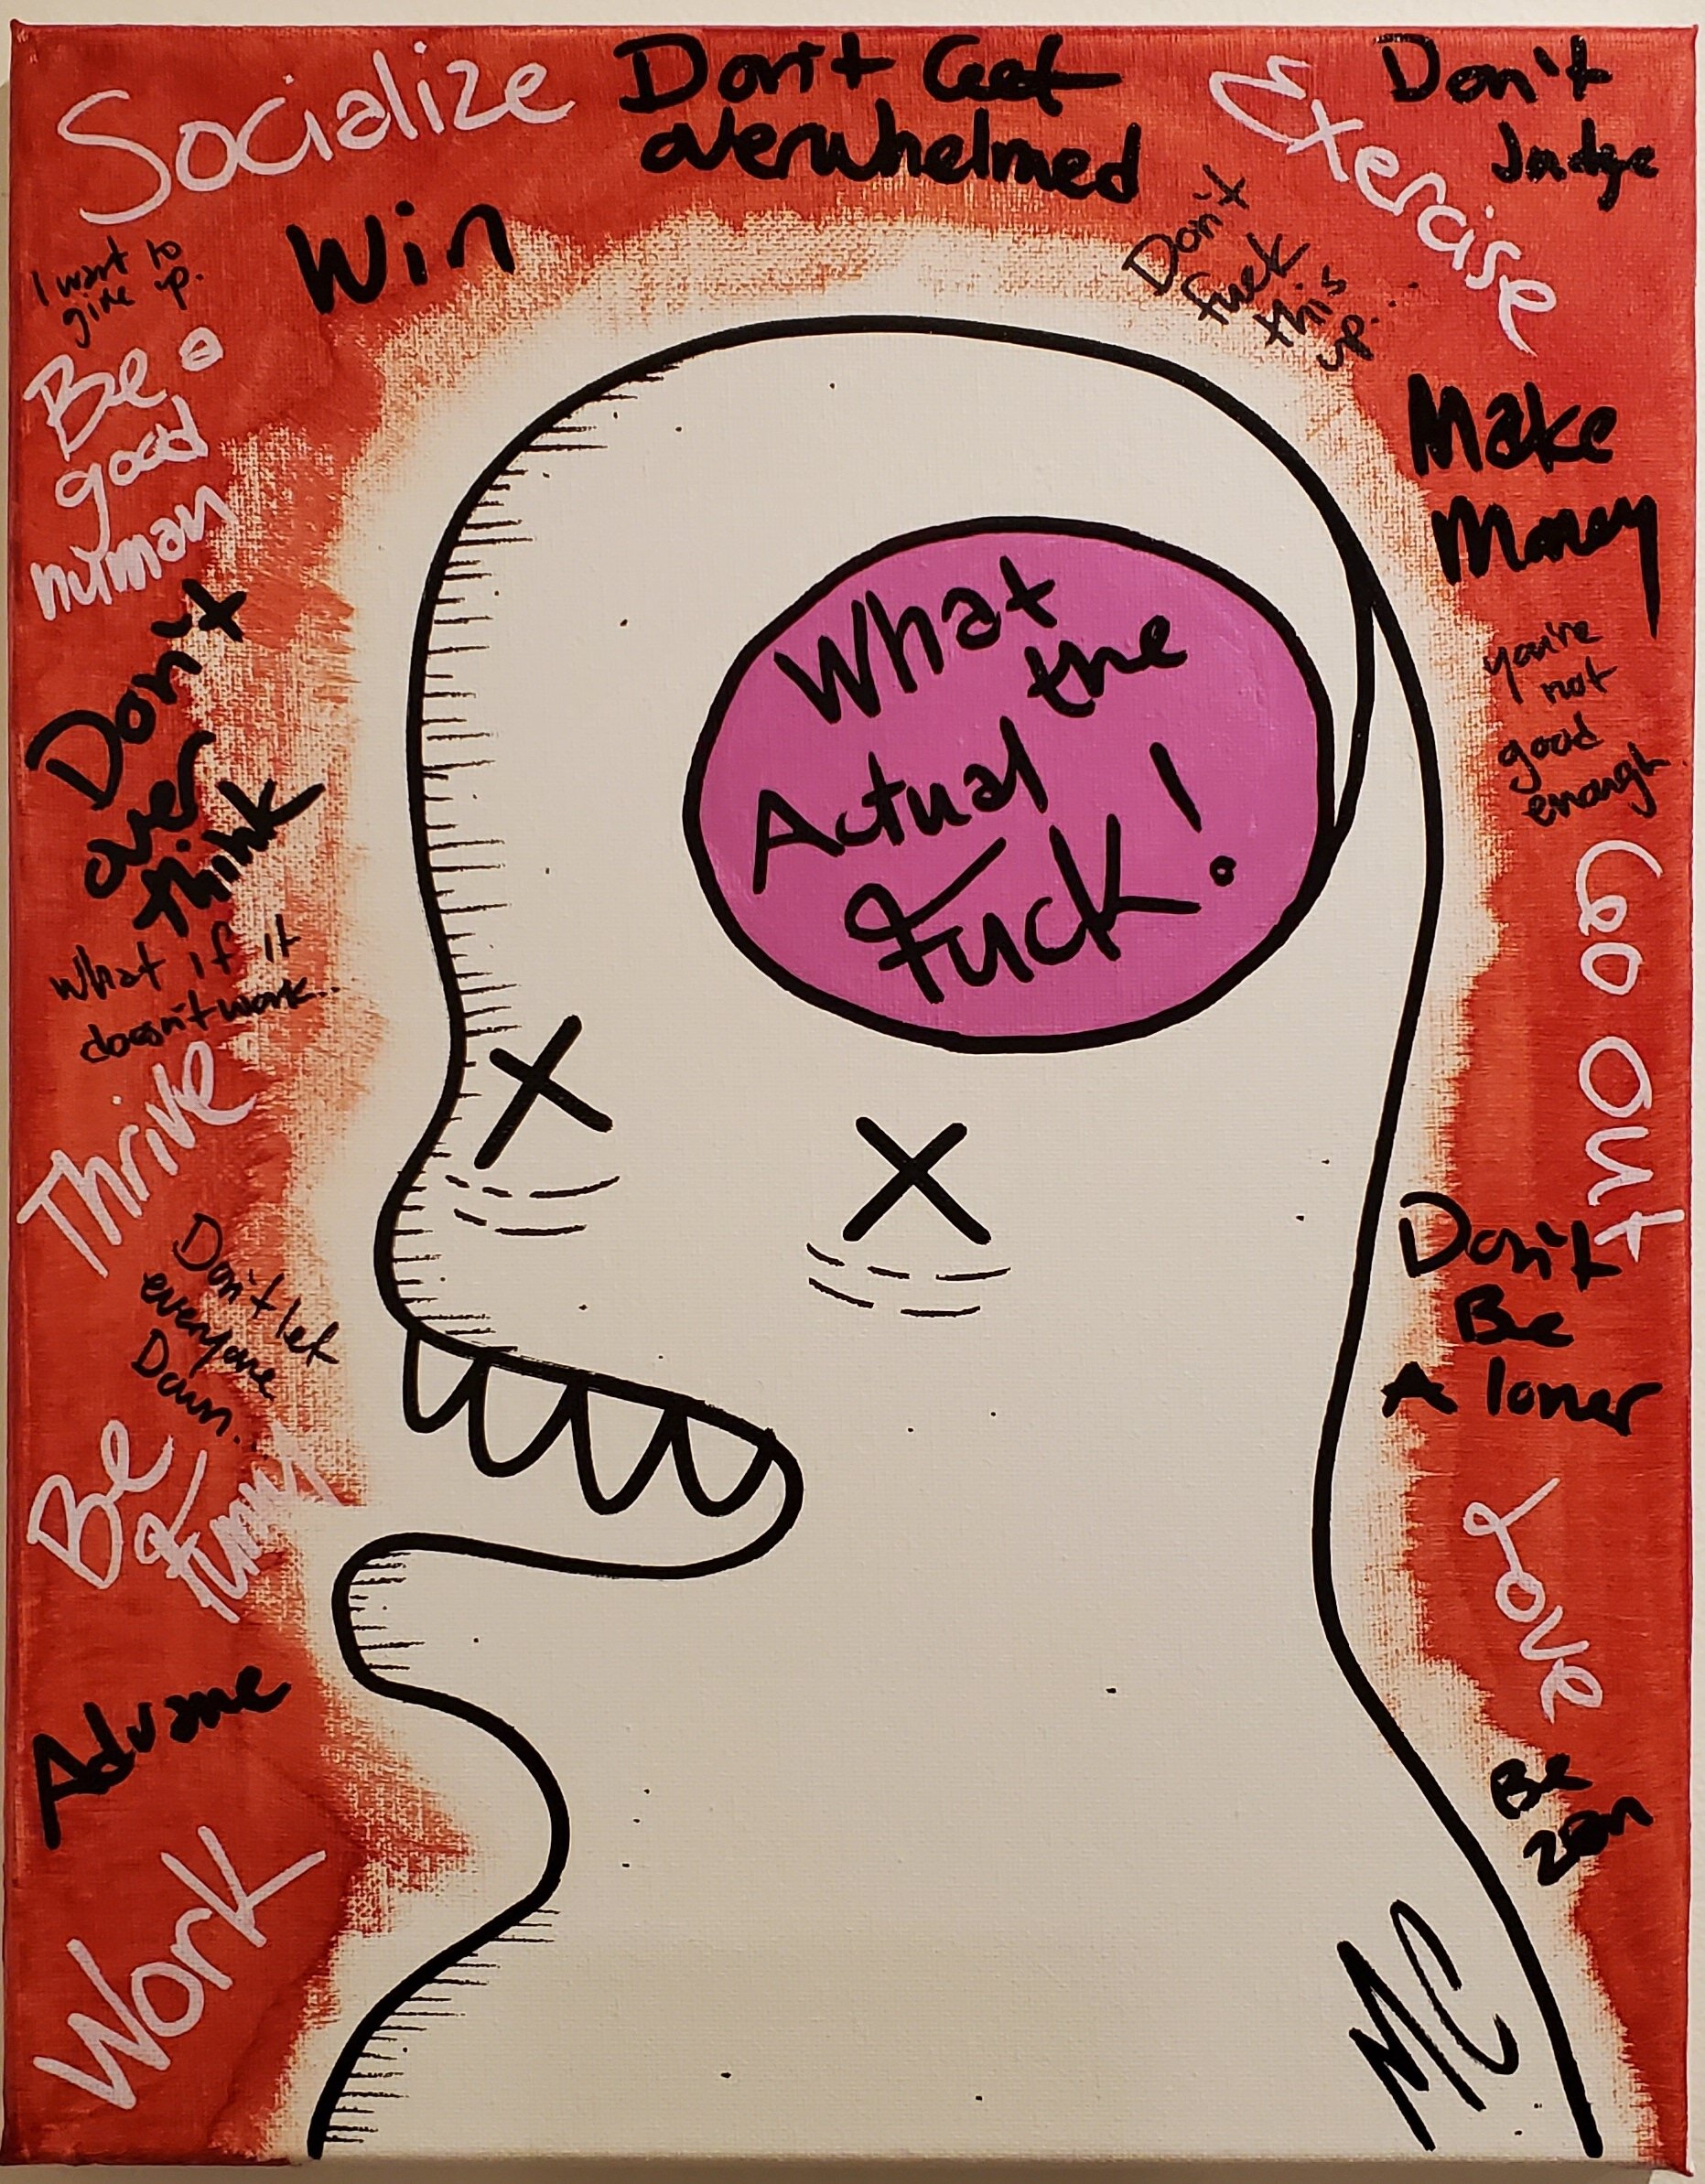 Socialize
Don't Get
overwhelmed
Exercise
Don't
Judge
Win
I want to
give up.
Don't
fuck
this
up...
Be a
good
human
Make
Money
Don't
over
think
you're
not
good
enough.
What
the
Actual
Fuck!
What if it
doesn't work..
Go Out
Thrive
Don't let
everyone
Down..
Don't
Be
A loner
Be
Funny
Love
Advance
Be
zen
Work
MC